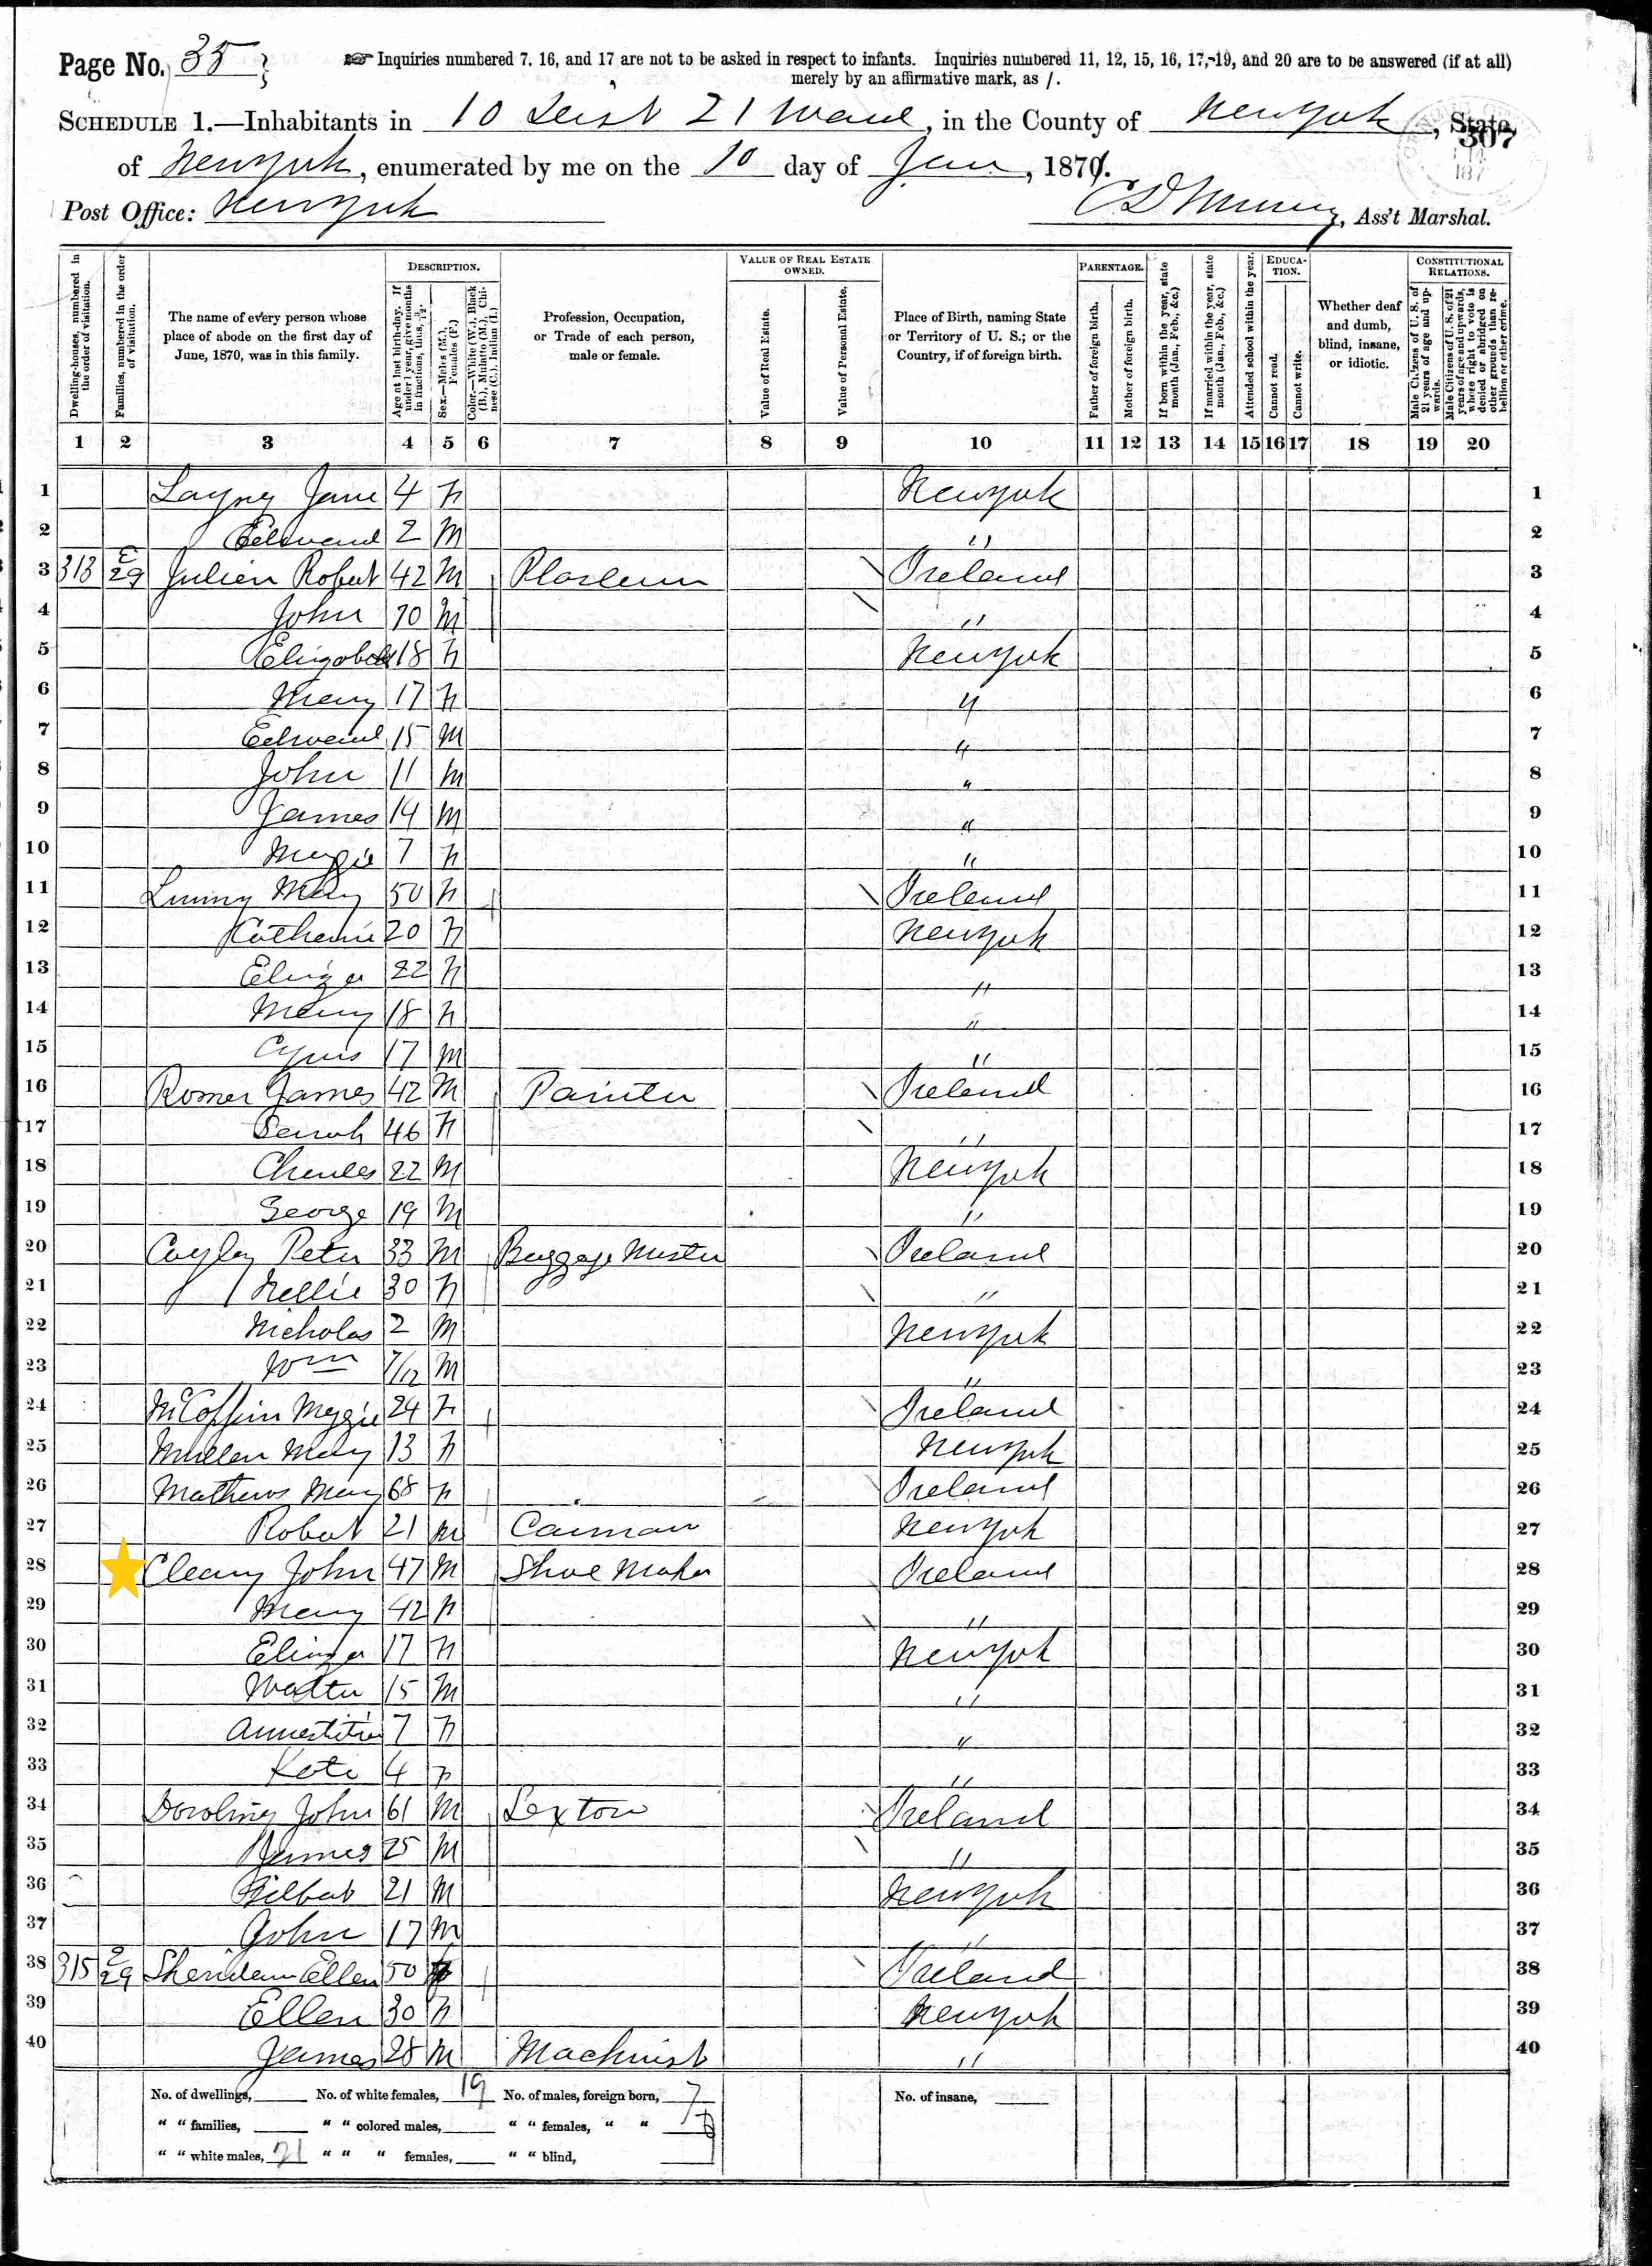 Page No. 35
Inquiries numbered 7, 16, and 17 are not to be asked in respect to infants. Inquiries numbered 11, 12, 15, 16, 17, 19, and 20 are to be answered (if at all)
merely by an affirmative mark, as /.
SCHEDULE 1.—Inhabitants in 10 Dist 21 Ward, in the County of New York, State
307
of New York, enumerated by me on the 10 day of Jan, 1871.
Post Office: New York
Ass't Marshal.
Dwelling-houses, numbered in the order of visitation.
Families, numbered in the order of visitation.
The name of every person whose place of abode on the first day of June, 1870, was in this family.
DESCRIPTION.
Age at last birth-day. If under 1 year, give months in fractions, thus, 3/12.
Sex.—Males (M.), Females (F.)
Color.—White (W.), Black (B.), Mulatto (M.), Chinese (C.), Indian (I.)
Profession, Occupation, or Trade of each person, male or female.
VALUE OF REAL ESTATE OWNED.
Value of Real Estate.
Value of Personal Estate.
Place of Birth, naming State or Territory of U. S.; or the Country, if of foreign birth.
PARENTAGE.
Father of foreign birth.
Mother of foreign birth.
If born within the year, state month (Jan., Feb., &c.)
If married within the year, state month (Jan., Feb., &c.)
EDUCATION.
Attended school within the year.
Cannot read.
Cannot write.
Whether deaf and dumb, blind, insane, or idiotic.
CONSTITUTIONAL RELATIONS.
Male Citizens of U. S. of 21 years of age and upwards.
Male Citizens of U. S. of 21 years of age and upwards, whose right to vote is denied or abridged on other grounds than rebellion or other crime.
1 2 3 4 5 6 7 8 9 10 11 12 13 14 15 16 17 18 19 20
1 Jane 4 F New York 1
2 Edward 2 M " 2
3 313 E 29 Julien Robert 42 M Ireland 3
4 John 70 M " 4
5 Elizabeth 18 F New York 5
6 Mary 17 F " 6
7 Edward 15 M " 7
8 John 11 M " 8
9 James 14 M " 9
10 Maggie 7 F " 10
11 Mary 50 F Ireland 11
12 Catherine 20 F New York 12
13 Eliza 22 F " 13
14 Mary 18 F " 14
15 Cyrus 17 M " 15
16 Romer James 42 M Painter Ireland 16
17 Sarah 46 F " 17
18 Charles 22 M New York 18
19 George 19 M " 19
20 Peter 33 M Baggage Master Ireland 20
21 Nellie 30 F " 21
22 Nicholas 2 M New York 22
23 Wm 7/12 M " 23
24 Maggie 24 F Ireland 24
25 Mullen Mary 13 F New York 25
26 Mathews Mary 68 F Ireland 26
27 Robert 21 M Carman New York 27
28 Cleary John 47 M Shoe Maker Ireland 28
29 Mary 42 F " 29
30 Eliza 17 F New York 30
31 Walter 15 M " 31
32 7 F " 32
33 Kate 4 F " 33
34 Dowling John 61 M Sexton Ireland 34
35 James 25 M " 35
36 Gilbert 21 M New York 36
37 John 17 M " 37
38 315 E 29 Sheridan Ellen 50 F Ireland 38
39 Ellen 30 F New York 39
40 James 28 M Machinist " 40
No. of dwellings, No. of white females, 19 No. of males, foreign born, 7 No. of insane,
" " families, " " colored males, " " females, " "
" " white males, 21 " " " females, " " blind,